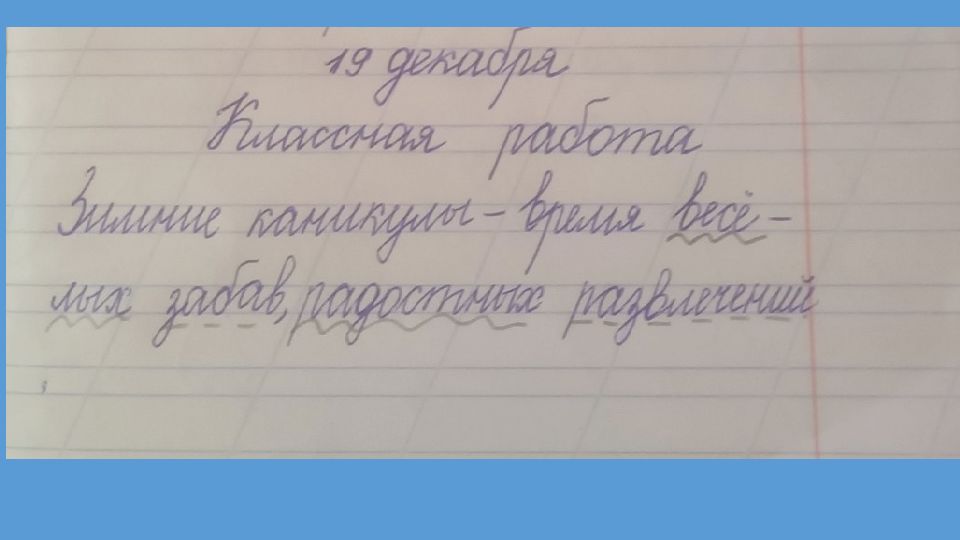 19 декабря
Классная работа
Зимние каникулы – время весё–
лых забав, радостных развлечений